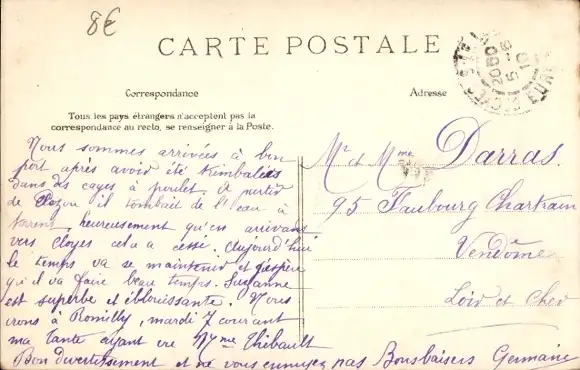 8€
CARTE POSTALE
Correspondance
Adresse
Tous les pays étrangers n'acceptent pas la
correspondance au recto, se renseigner à la Poste.
Nous sommes arrivées à bon
port après avoir été trimbalées
dans des cages à poulet. A partir
de Pezou il tombait de l'eau à
torrens, heureusement qu'en arrivant
vers Cloyes cela a cessé. Aujourd'hui
le temps va se maintenir et j'espère
qu'il va faire beau temps. Suzanne
est superbe et éblouissante. Nous
irons à Romilly, mardi 7 courant
ma tante ayant vu Mme Thibault
Bon divertissement et ne vous ennuyez pas Bons baisers Germaine
Mr et Mme Darras
95 Faubourg Chartrain
Vendôme
Loir et Cher